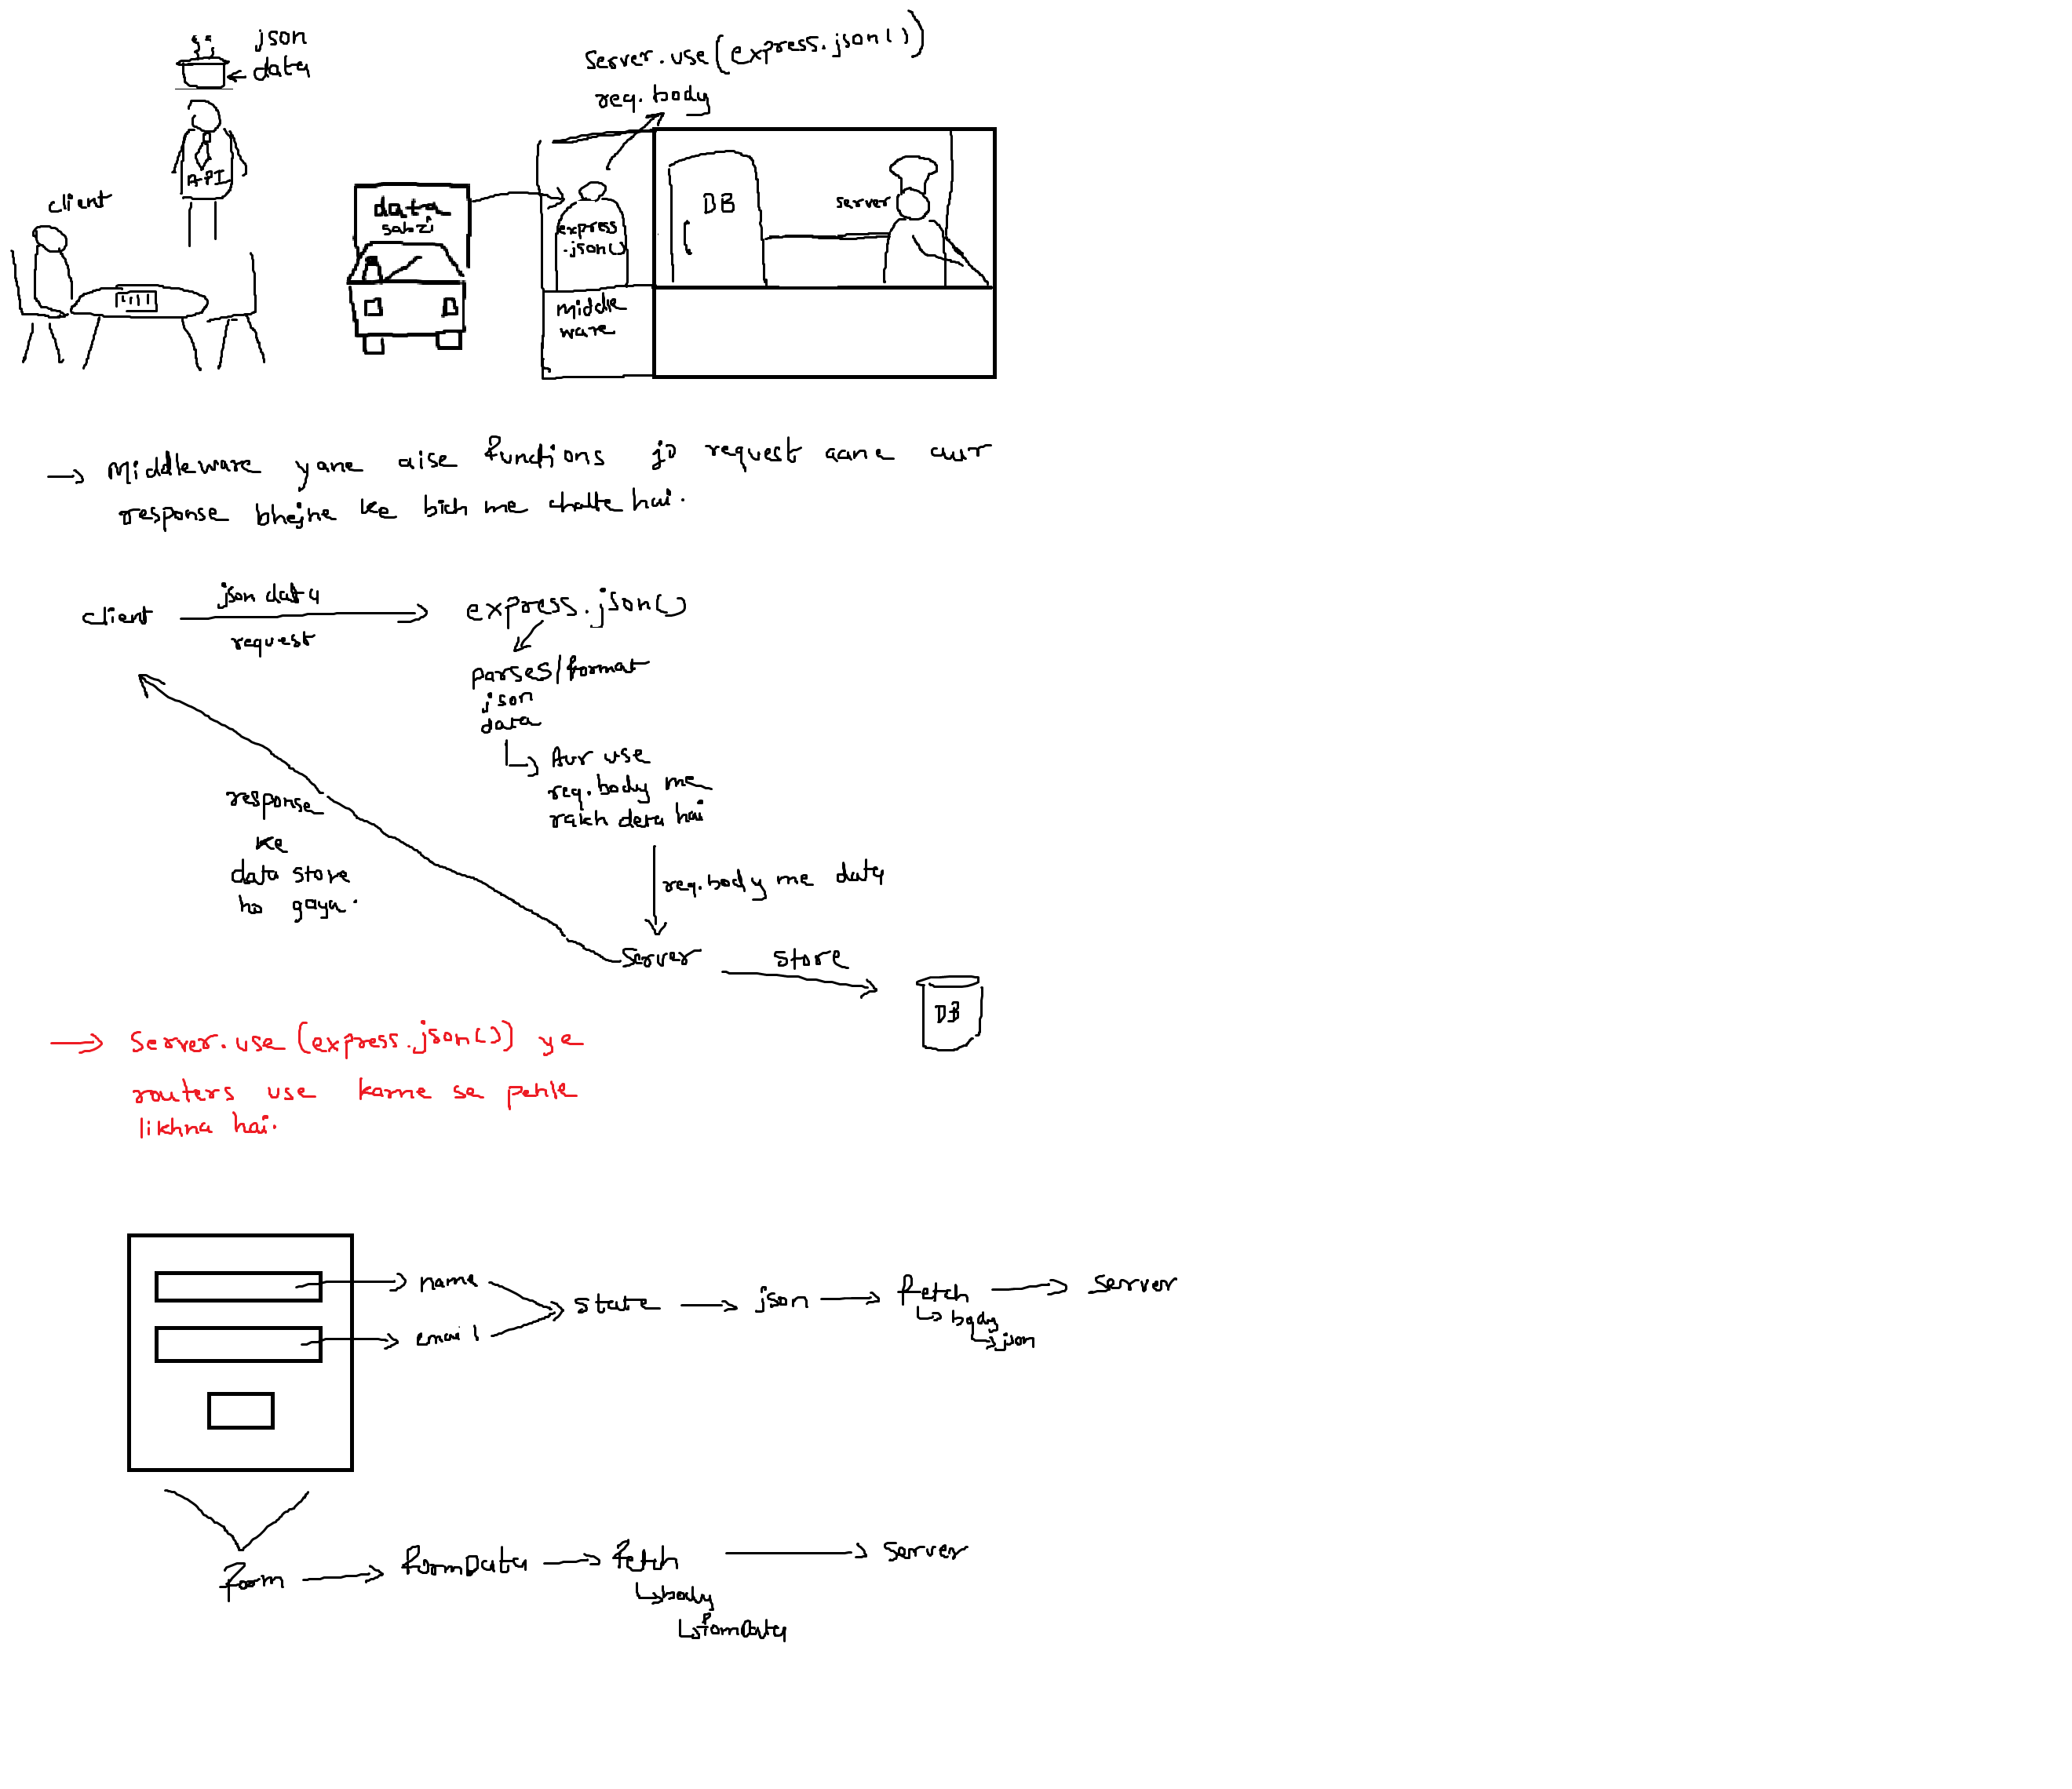 json
data
API
client
Server.use(express.json())
req.body
data
sabzi
express
.json()
middle
ware
DB
server
→ Middleware yane aise functions jo request aane aur
response bhejne ke bich me chalte hai.
client
json data
request
express.json()
parses/format
json
data
Aur use
req.body me
rakh deta hai
req.body me data
response
ke
data store
ho gaya.
Server
store
DB
→ Server.use(express.json()) ye
routers use karne se pehle
likhna hai.
name
email
state → json → fetch → server
body
json
form → formData → fetch → server
body
formData